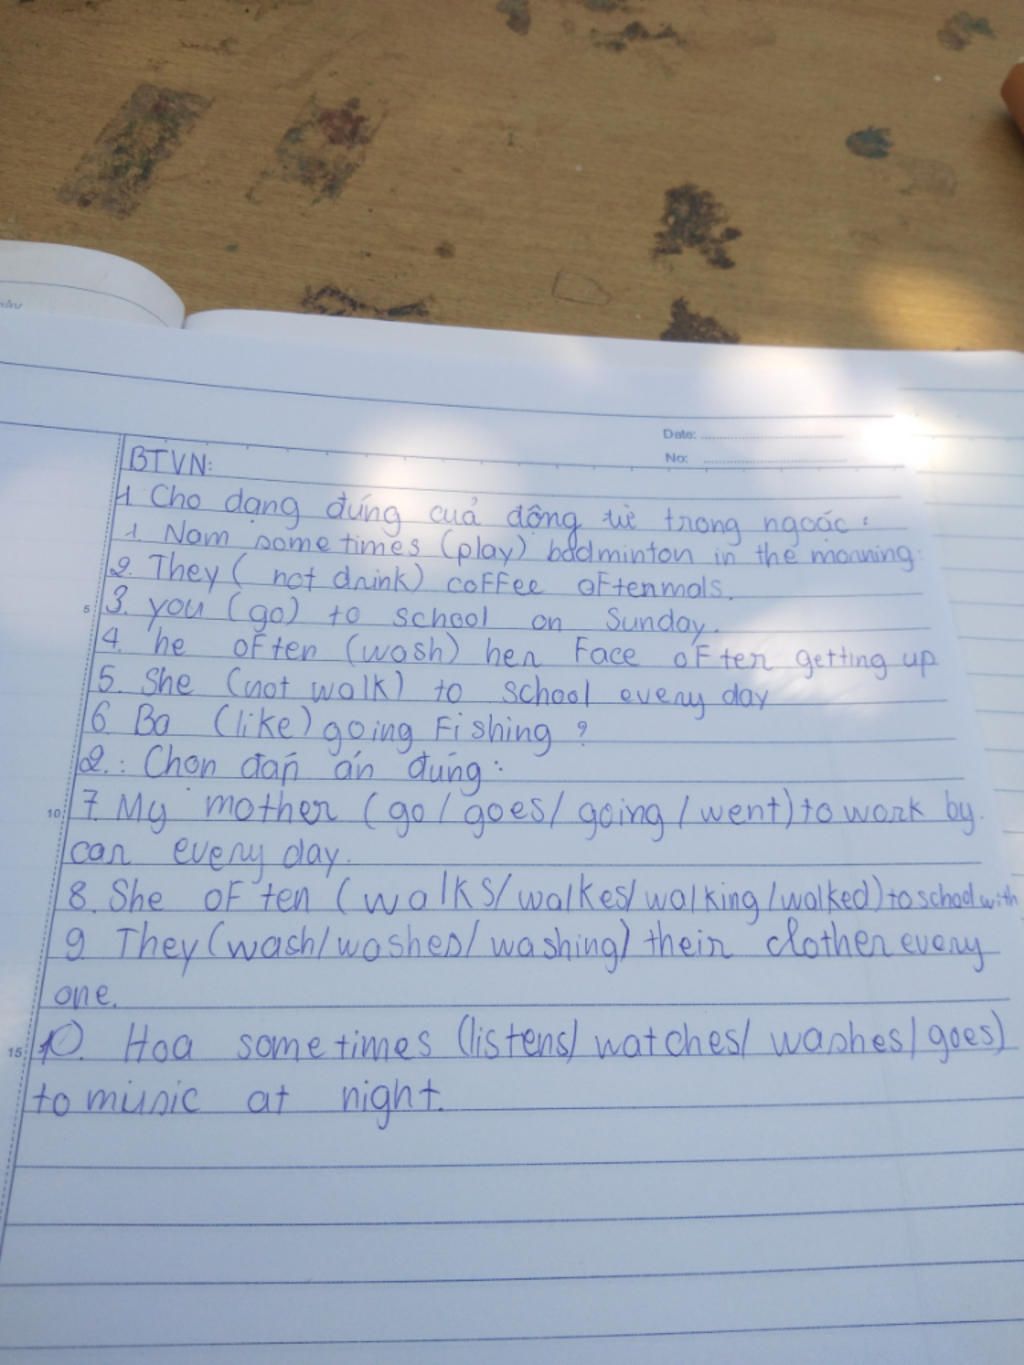 Date:
No:
BTVN:
1 Cho dạng đúng cuả động từ trong ngoặc:
1. Nam sometimes (play) badminton in the morning.
2. They (not drink) coffee oftenmols.
3. you (go) to school on Sunday.
4. he often (wash) her Face often getting up
5 5. She (not walk) to school every day
6. Ba (like) going Fishing ?
2.: Chọn đáp án đúng:
10 7. My mother (go/goes/going/went) to work by
car every day.
8. She often (walks/walkes/walking/walked) to school with
9. They (wash/washes/washing) their clother every
one.
15 10. Hoa sometimes (listens/watches/washes/goes)
to music at night.